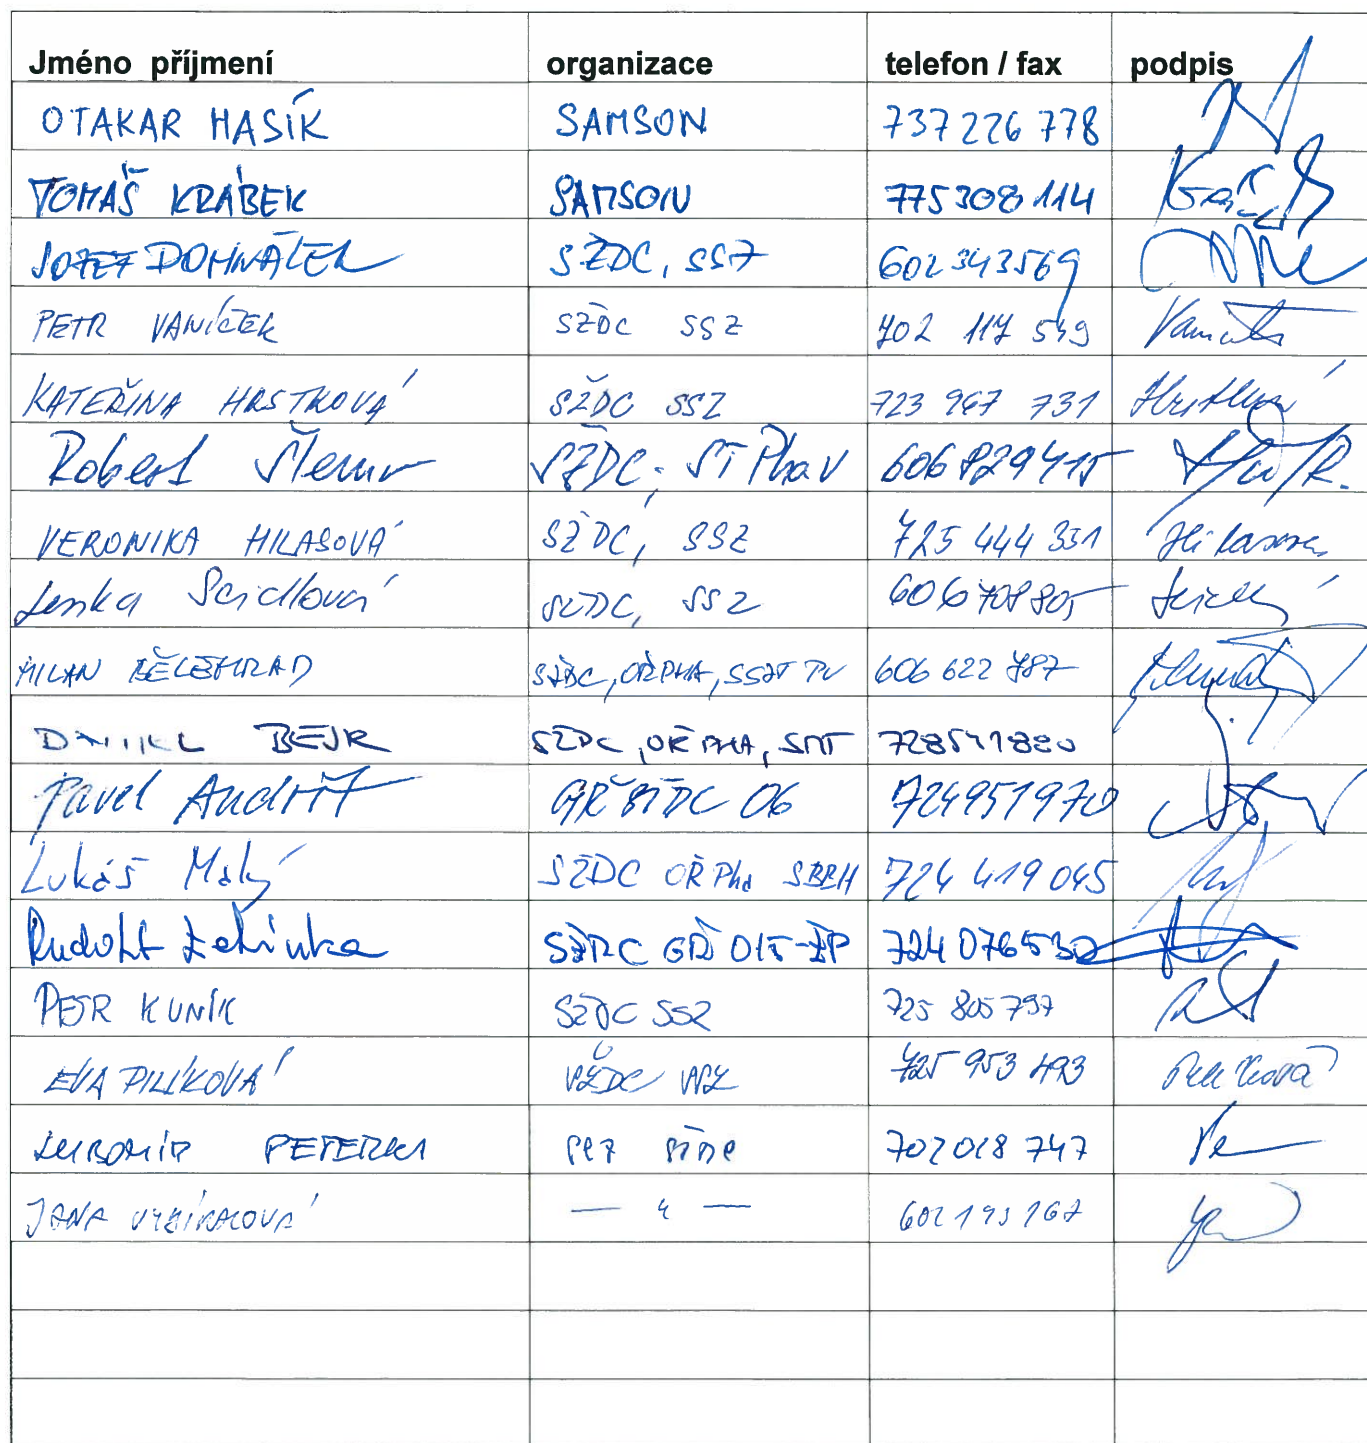 Jméno příjmení organizace telefon / fax podpis
OTAKAR HASÍK SAMSON 737 226 778
TOMÁŠ KRÁBEK SAMSON 775 308 114
JOZEF DOMHVÁLEK SŽDC, SSZ 602 343 569
PETR VANÍČEK SŽDC SSZ 702 117 549
KATEŘINA HRSTKOVÁ SŽDC SSZ 723 967 731
Robert SŽDC, ST Pha V 606 829 415
VERONIKA HILASOVÁ SŽDC, SSZ 725 444 331
Lenka Seidlová SŽDC, SSZ 606 708 805
MILAN BĚLEHRAD SŽDC, OŘ PHA, SSZT 606 622 787
BEJR SŽDC, OŘ PHA, SMT 728541880
Pavel Andrlt GŘ SŽDC O6 724951970
Lukáš Malý SŽDC OŘ Pha SBBH 724 419 045
Rudolf Žehinka SŽDC GŘ O15-ŽP 724 076530
PETR KUNÍK SŽDC SSZ 725 805 797
EVA PILÍKOVÁ SŽDC SSZ 725 953 493
LUBOMÍR PETERKA SSZ SŽDC 702 018 747
JANA — " — 602 193 167